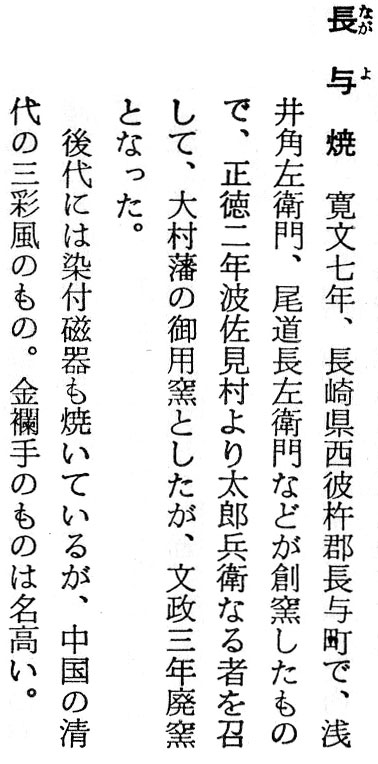 長与焼　寛文七年、長崎県西彼杵郡長与町で、浅
井角左衛門、尾道長左衛門などが創窯したもの
で、正徳二年波佐見村より太郎兵衛なる者を召
して、大村藩の御用窯としたが、文政三年廃窯
となった。
後代には染付磁器も焼いているが、中国の清
代の三彩風のもの。金襴手のものは名高い。